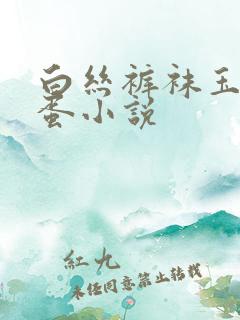 白丝裤袜玉
蛋小说
紅九
未经同意禁止转载